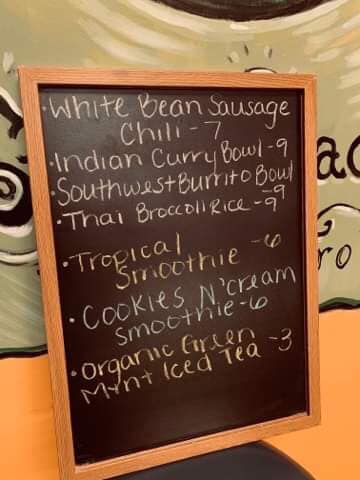 · White Bean Sausage
Chili - 7
· Indian Curry Bowl - 9
· Southwest Burrito Bowl
- 9
· Thai Broccoli Rice - 9
· Tropical
Smoothie - 6
· Cookies N' Cream
Smoothie - 6
· Organic Green
Mint Iced Tea - 3